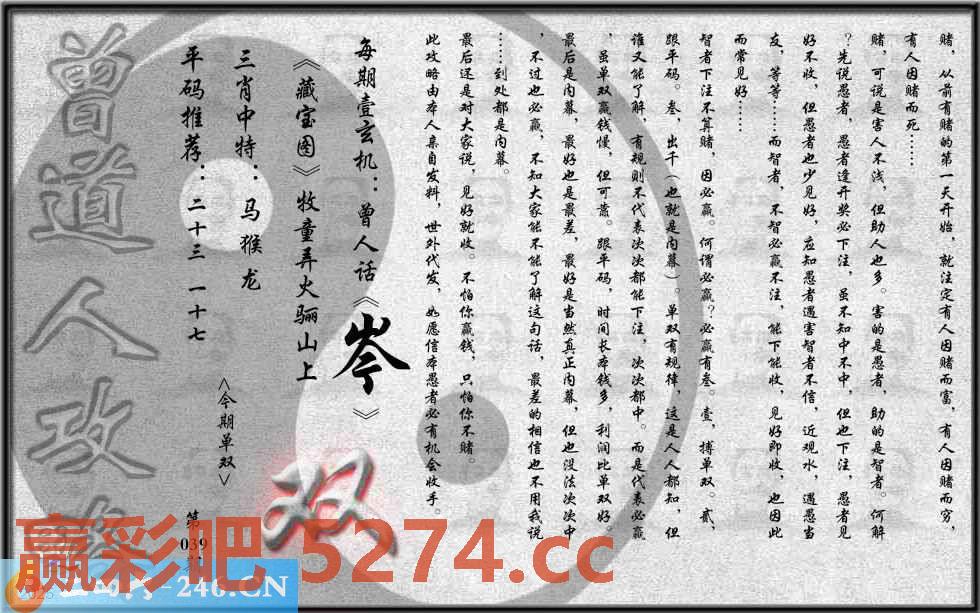 赌，从前有赌的第一天开始，就注定有人因赌而富，有人因赌而穷，
有人因赌而死……
赌，可说是害人不浅，但助人也多。害的是愚者，助的是智者。何解
？先说愚者，愚者逢开奖必下注，虽不知中不中，但也下注，愚者见
好不收，但愚者也少见好，应知愚者遇害智者不信，近观水，遇愚当
友，等等……而智者，不智必赢不注，能下能收，见好即收，也因此
而常见好……
智者下注不算赌，因必赢。何谓必赢？必赢有叁。壹，搏单双。贰，
跟平码。叁，出千（也就是内幕）。单双有规律，这是人人都知，但
谁又能了解，有规则不代表次次都能下注，次次都中。而是代表必赢
，虽单双赢钱慢，但可靠。跟平码，时间长本钱多，利润比单双好。
最后是内幕，最好也是最差，最好是当然真正内幕，但也没法次次中
，不过也必赢，不知大家能不能了解这句话，最差的相信也不用我说
……到处都是内幕。
最后还是对大家说，见好就收。不怕你赢钱，只怕你不赌。
此攻略由本人亲自发料，世外代发，如愿信本愚者必有机会收手。
每期壹玄机：曾人话《岑》
《藏宝图》牧童弄火骊山上
三肖中特：马猴龙
平码推荐：二十三 一十七
<今期单双>
双
第039
曾道人攻
赢彩吧 5274.cc
-246.CN
2023